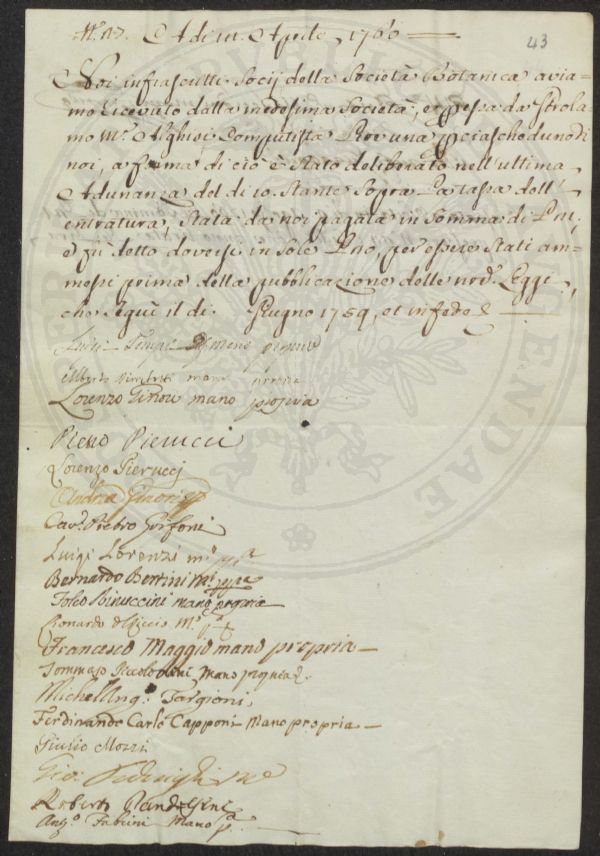 A di 11. Aprile 1760
43
Noi infrascritti Socij della Società Botanica avia=
mo ricevuto dalla medesima Società, e per essa da Girola
mo M.ª Alghisi Computista Lire una p ciascheduno di
noi, a forma di ciò è stato deliberato nell'ultima
Adunanza del di 10. Stante sopra La tassa dell'
entratura, stata da noi pagata in somma di
e fù detto doversi in sole Uno, per essere stati am=
messi prima della pubblicazione delle nod.e Leggi
che seguì il di. Giugno 1759, et in fede
Luigi propria
Alberto mano propria
Lorenzo Ginori mano propria
Pietro Pierucci
Lorenzo Pierucci
Andrea Ginori
Cav. Pietro Grifoni
Luigi Lorenzi m.º pp.ª
Bernardo Bertini M.º pp.ª
Folco Rinuccini mano propria
Leonardo del Riccio M.º p.ª
Francesco Maggio mano propria
Tommaso Piccolomini Mano propria
Michell'Ang.º Targioni
Ferdinando Carlo Capponi Mano propria
Giulio Mozzi
Gio:
Roberto Pandolfini
Ang.º Fabrini Mano p.ª